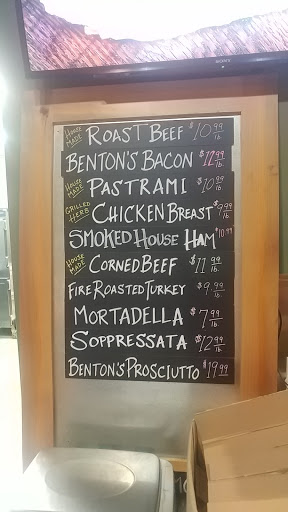 SONY
HOUSE MADE ROAST BEEF $10.99 lb.
BENTON'S BACON $11.99 lb.
HOUSE MADE PASTRAMI $10.99 lb.
GRILLED HERB CHICKEN BREAST $9.99 lb.
SMOKED HOUSE HAM $10.99
HOUSE MADE CORNED BEEF $11.99 lb.
FIRE ROASTED TURKEY $9.99 lb.
MORTADELLA $7.99 lb.
SOPPRESSATA $12.99 lb.
BENTON'S PROSCIUTTO $19.99